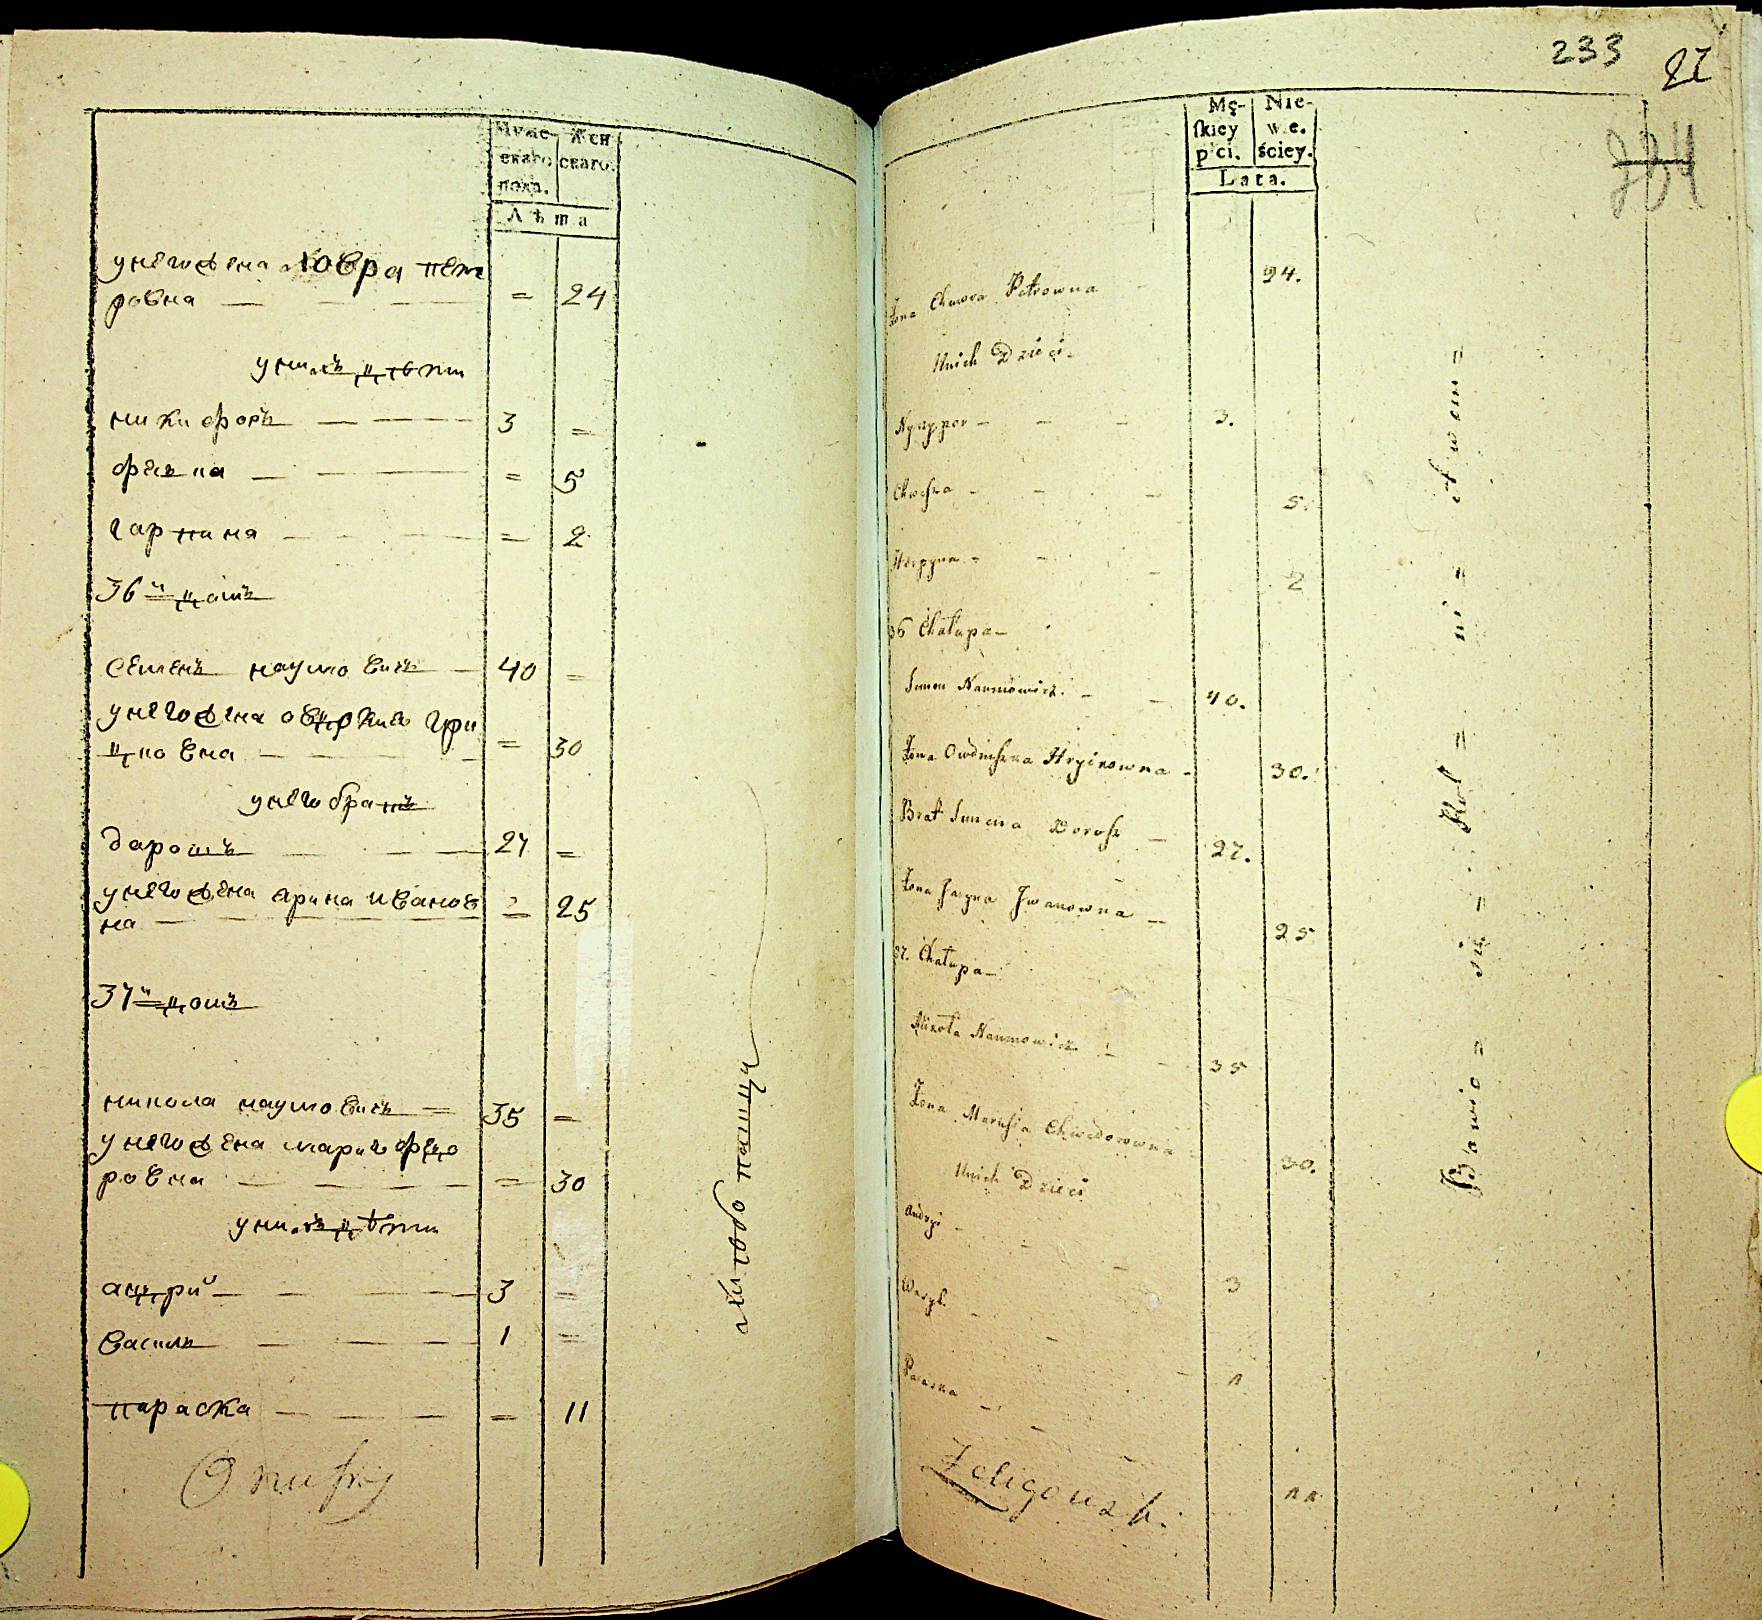 Муже- Жен
скаго скаго.
пола.
Лѣта
у него жена Ховра пет
ровна — = 24
у них дѣти
никифоръ — 3 =
феѣка — = 5
гарпина — = 2
36й домъ
семенъ наумовичъ — 40 =
у него жена овдокия гри
цковна — = 30
у него братъ
дарошъ — 27 =
у него жена арина иванов
на — = 25
37й домъ
никола наумовичъ — 35 =
у него жена мария федо
ровна — = 30
у них дѣти
андрий — 3 =
василь — 1 =
параска — = 11
233
27
Mę- Nie-
skiey we.
płci. ściey.
Lata.
Żona Chwora Petrowna 24.
Unich Dzieci.
3.
5.
Harpyna - 2
36 Chałupa—
Simon Naumowicz. - 40.
Żona Owdoszka Hryckowna - 30.
Brat Simona Dorosz — 27.
Żona Jaryna Jwanowna — 25
37. Chałupa—
Mikoła Naumowicz - 35
Żona Marusia Chwedorowna 30.
Unich Dzieci
Andryi - 3
Wasyl - 1
Paraska - 11
Żeligowski.